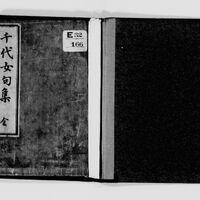 千代女句集 全
E 32
166